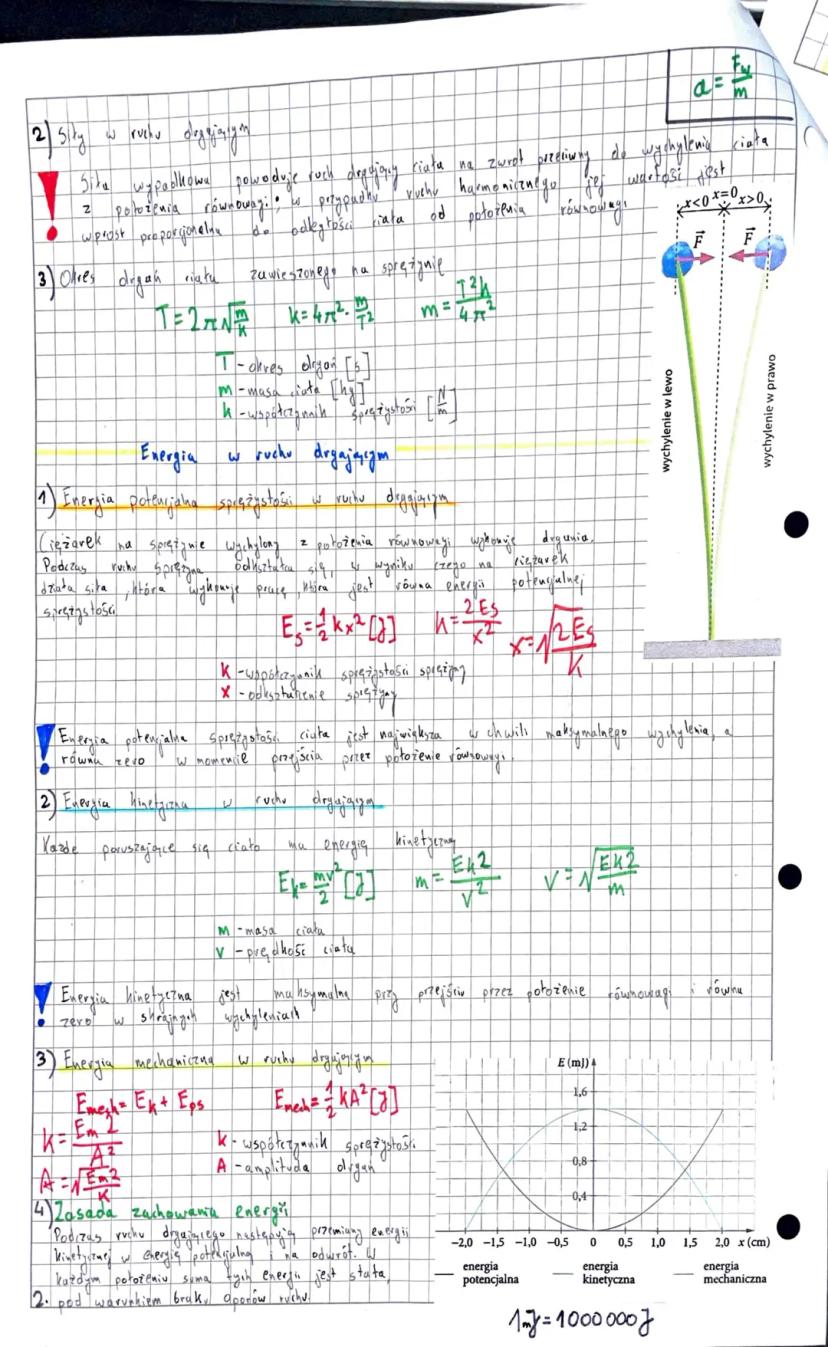 a = Fw/m
2) Siły w ruchu drgającym
! Siła wypadkowa powoduje ruch drgający ciała na zwrot przeciwny do wychylenia ciała
z położenia równowagi; w przypadku ruchu harmonicznego jej wartość jest
wprost proporcjonalna do odległości ciała od położenia równowagi
x<0 x=0 x>0
F F
wychylenie w lewo
wychylenie w prawo
3) Okres drgań ciała zawieszonego na sprężynie
T = 2π√(m/k) k = 4π² · m/T² m = T²k/4π²
T - okres drgań [s]
m - masa ciała [kg]
k - współczynnik sprężystości [N/m]
Energia w ruchu drgającym
1) Energia potencjalna sprężystości w ruchu drgającym
Ciężarek na sprężynie wychylony z położenia równowagi wykonuje drgania.
Podczas ruchu sprężyna odkształca się, w wyniku czego na ciężarek
działa siła, która wykonuje pracę, która jest równa energii potencjalnej
sprężystości
Es = 1/2 kx² [J] k = 2Es/x² x = √(2Es/k)
k - współczynnik sprężystości sprężyny
x - odkształcenie sprężyny
! Energia potencjalna sprężystości ciała jest największa w chwili maksymalnego wychylenia, a
równa zero w momencie przejścia przez położenie równowagi.
2) Energia kinetyczna w ruchu drgającym
Każde poruszające się ciało ma energię kinetyczną
Ek = mv²/2 [J] m = Ek2/v² v = √(Ek2/m)
m - masa ciała
v - prędkość ciała
! Energia kinetyczna jest maksymalna przy przejściu przez położenie równowagi i równa
zero w skrajnych wychyleniach
3) Energia mechaniczna w ruchu drgającym
Emech = Ek + Eps Emech = 1/2 kA² [J]
k = Em2/A²
A = √(Em2/k)
k - współczynnik sprężystości
A - amplituda drgań
4) Zasada zachowania energii
Podczas ruchu drgającego następują przemiany energii
kinetycznej w energię potencjalną i na odwrót. W
każdym położeniu suma tych energii jest stała,
2. pod warunkiem braku oporów ruchu.
E (mJ)
1,6
1,2
0,8
0,4
-2,0 -1,5 -1,0 -0,5 0 0,5 1,0 1,5 2,0 x (cm)
energia potencjalna
energia kinetyczna
energia mechaniczna
1mJ = 1000000J